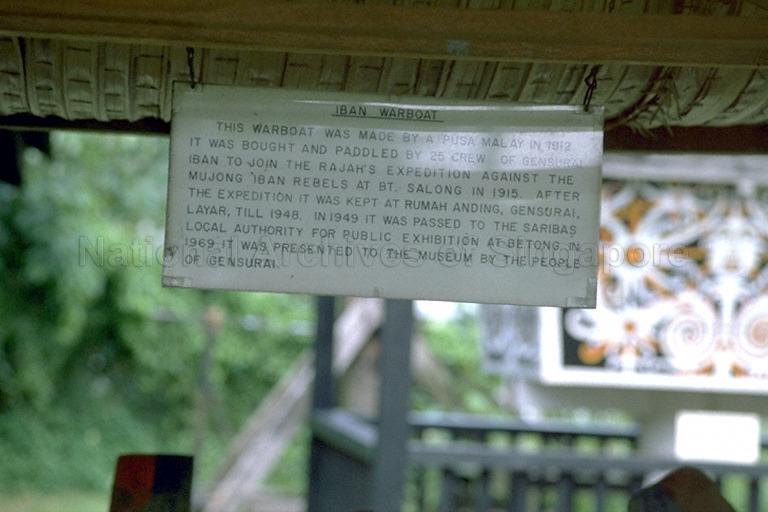 IBAN WARBOAT
THIS WARBOAT WAS MADE BY A PUSA MALAY IN 1912.
IT WAS BOUGHT AND PADDLED BY 25 CREW OF GENSURAI
IBAN TO JOIN THE RAJAH'S EXPEDITION AGAINST THE
MUJONG IBAN REBELS AT BT. SALONG IN 1915. AFTER
THE EXPEDITION IT WAS KEPT AT RUMAH ANDING, GENSURAI,
LAYAR, TILL 1948. IN 1949 IT WAS PASSED TO THE SARIBAS
LOCAL AUTHORITY FOR PUBLIC EXHIBITION AT BETONG. IN
1969 IT WAS PRESENTED TO THE MUSEUM BY THE PEOPLE
OF GENSURAI.
National Archives of Singapore